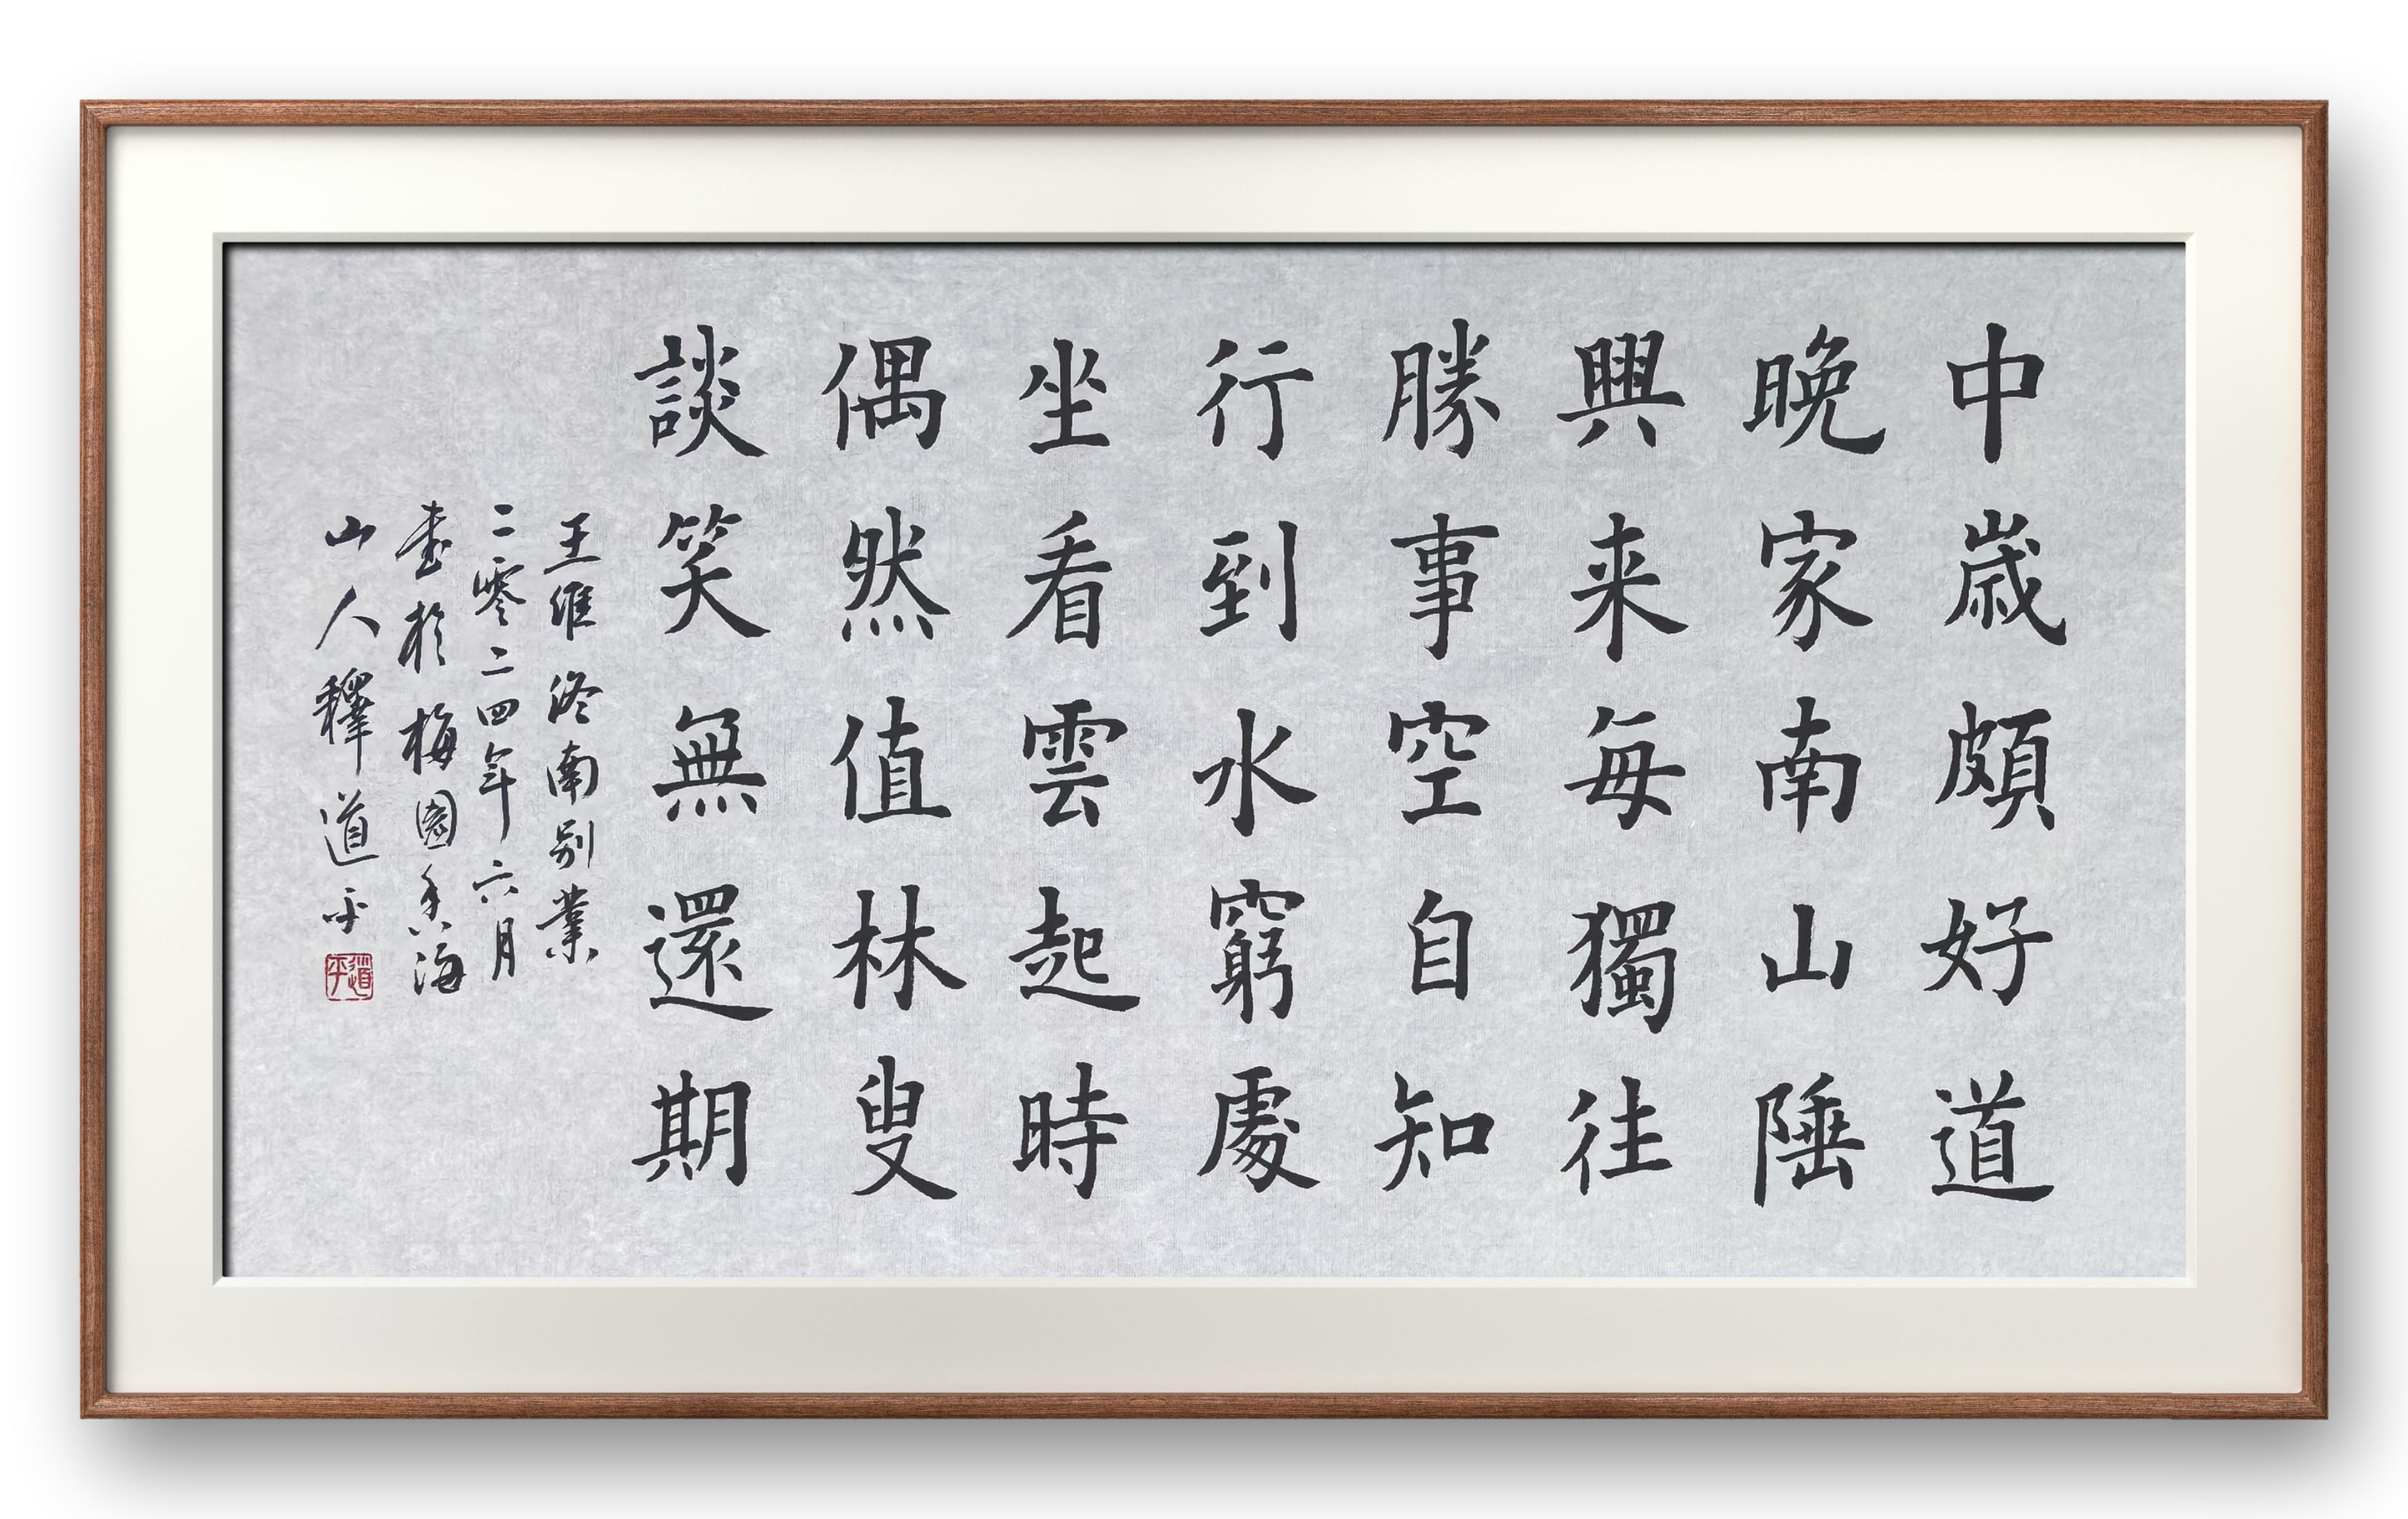 中歳頗好道
晚家南山陲
興来每獨往
勝事空自知
行到水窮處
坐看雲起時
偶然值林叟
談笑無還期
王維終南别業
二零二四年六月
書於梅園香海
山人釋道平
道平